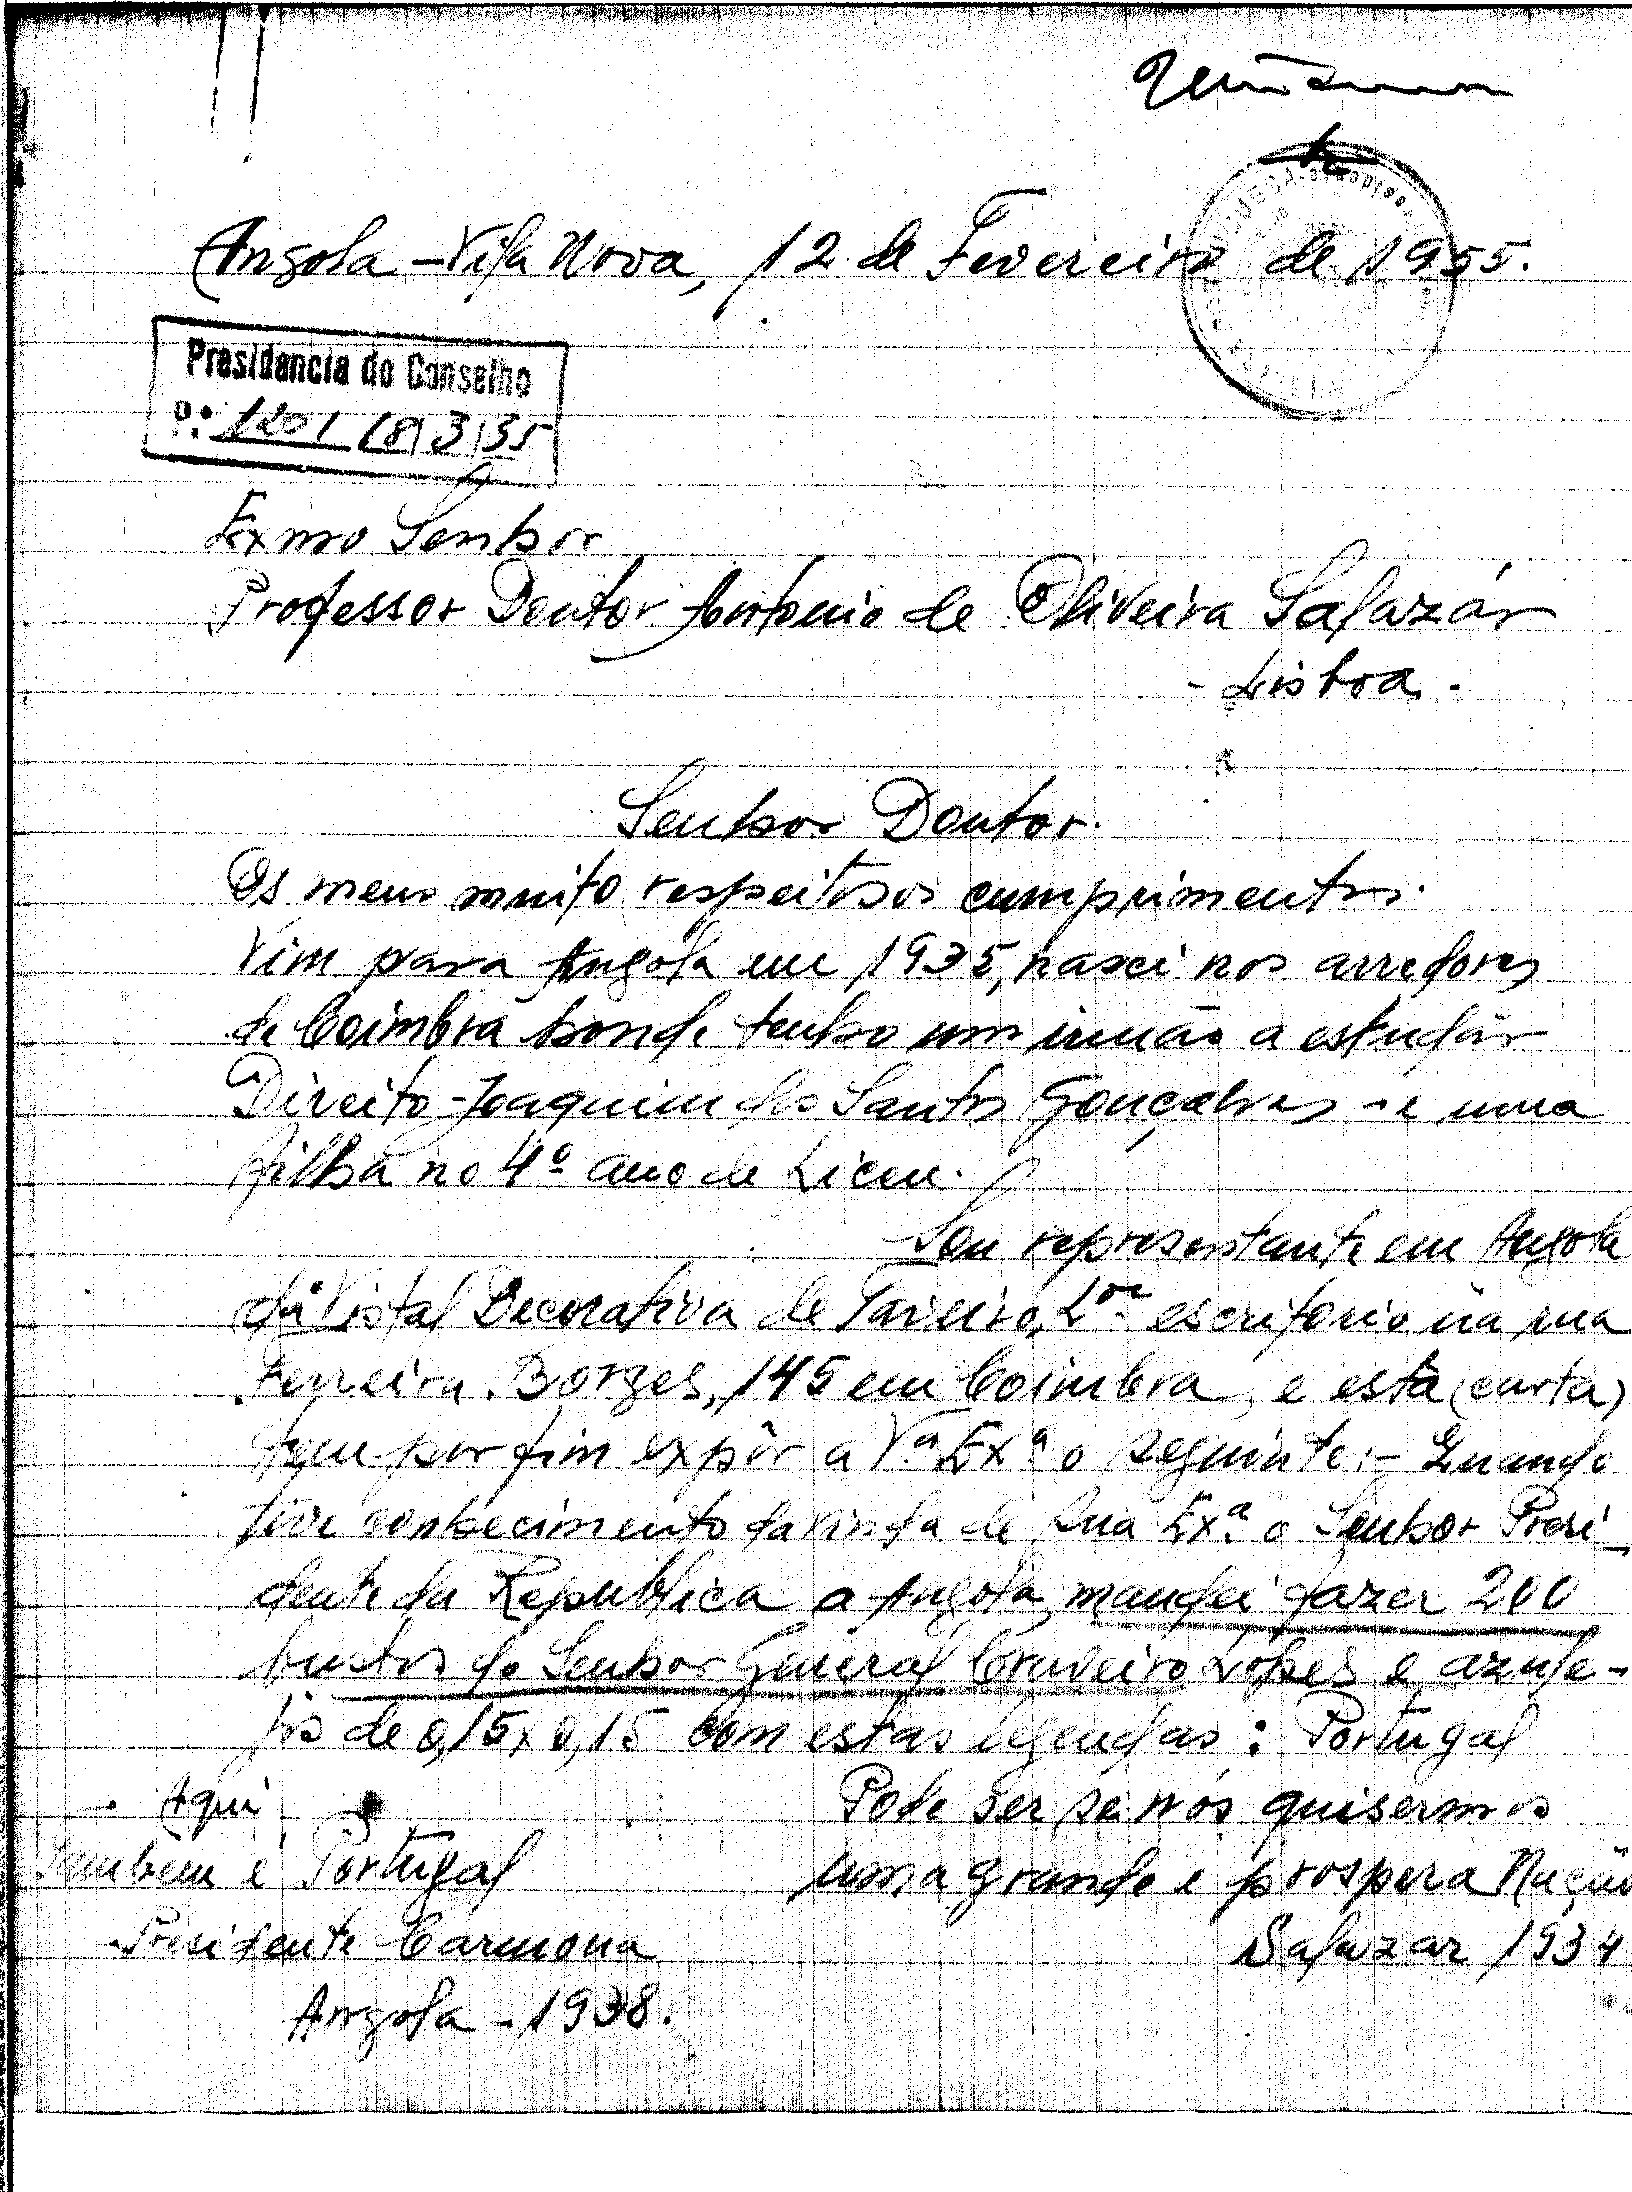 Angola - Vila Nova, 12 de Fevereiro de 1955.
Presidencia do Conselho
1201 18 3 55
Exmo Senhor
Professor Doutor Antonio de Oliveira Salazár
- Lisboa.
Senhor Doutor.
Os meus muito respeitosos cumprimentos.
Vim para Angola em 1935, nasci nos arredores
de Coimbra honde tenho um irmão a estudár
Direito - Joaquim dos Santos Gonçalves - e uma
filha no 4º ano de Liceu.
Sou representante em Angola
da Vistal Decorativa de Taveiro, L.da escritorio na rua
Ferreira Borges, 145 em Coimbra, e esta (carta)
tem por fim expôr a V.ª Exª o seguinte:- Quando
tive conhecimento da vinda de Sua Exª o Senhor Presi-
dente da Republica a Angola, mandei fazer 200
bustos do Senhor General Craveiro Lopes e azule-
jos de 0,15 x 0,15 com estas legendas: Portugal
Aqui Pode ser se nós quisermos
Tambem é Portugal uma grande e prospera Nação
Presidente Carmona Salazar 1934
Angola - 1938.